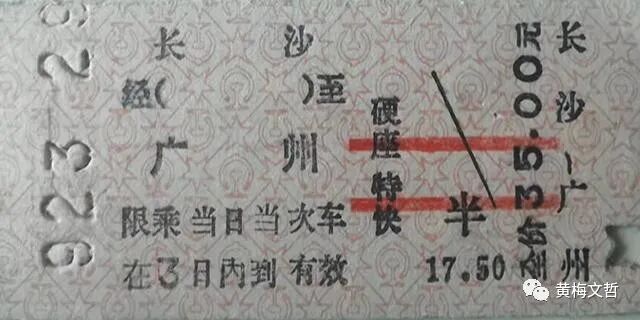 923 29
长 沙
经( )至
广 州
限乘当日当次车
在3日内到有效
硬座特快
半
17.50
全价35.00元
长沙—广州
黄梅文哲